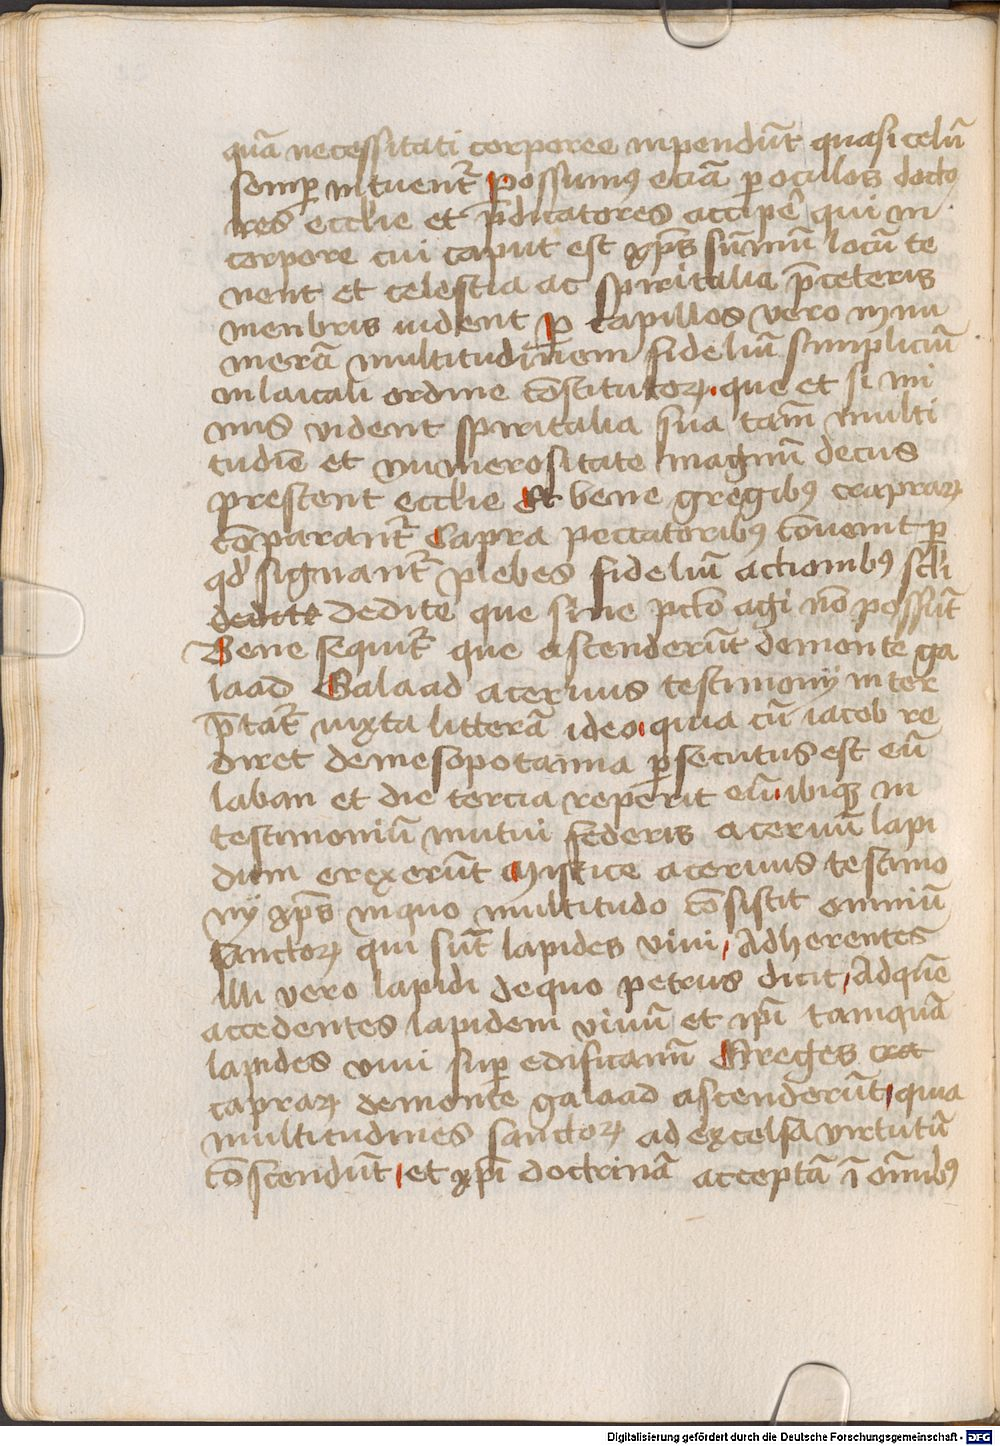 quā necessitati corporee inpendūt quasi celū
semp intuent͛ possumꝰ eciā p oculos docto
res ecclie et p̄dicatores accipe᷑ qui in
corpore cui caput est xp̄s sūmū locū te
nent et celestia ac spiritalia p̄ceteris
menbris uident p̄ capillos vero innu
merā multitudinem fideliū simpliciū
in laicali ordine cōstitutoꝝ que et si mi
nus vident spiritalia sua tam̄ multi
tudīe et numerositate magnū decus
prestent ecclie Et bene gregibꝰ craprarꝝ
cōparant͛ Capra peccatoribꝰ cōuenit p̄
qd̕ signant͛ plebes fideliū actionibꝰ scl̄i
dedite dedite que sine pctō agi nō possūt
Bene sequit͛ que ascenderūt de monte ga
laad Galaad aceruus testimonÿ inter
p̄tat͛ iuxta litterā ideo quia cū iacob re
diret de mesopotamia ꝑsecutus est eū
laban et die tercia reperit eū ibiqꝫ in
testimoniū mutui federis aceruū lapi
dum erexerūt Mistice aceruus testimo
nÿ xp̄s in quo multitudo cōsistit omniū
sanctoꝝ qui sūt lapides viui Adherentes
illi vero lapidi de quo petrus dicit Ad quē
accedentes lapidem viuū et ip̄i tamquā
lapides viui suꝑ edificamī Greges cra
caprarꝝ de monte galaad ascenderūt quia
multitudines sanctoꝝ ad excelsa virtutū
cōscendūt et xp̄i doctrinā acceptā ī om̄ibꝰ
Digitalisierung gefördert durch die Deutsche Forschungsgemeinschaft - DFG